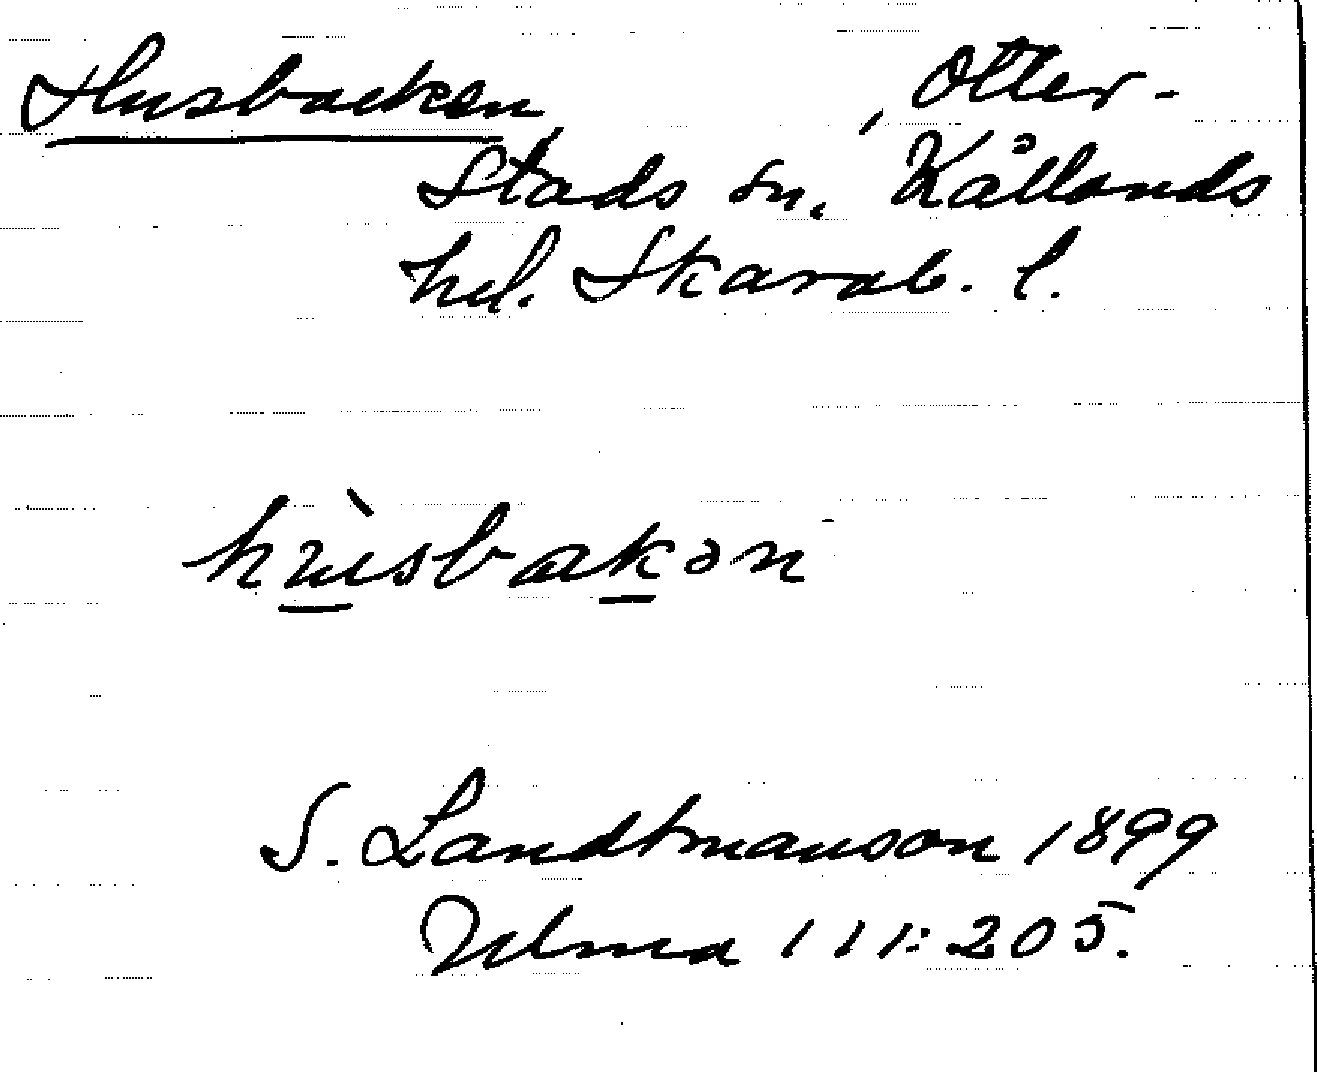 Husbacken, Otter-
stads sn, Kållands
hd. Skarab. l.
hùsbakən
S. Landtmanson 1899
Ulma 111:205.